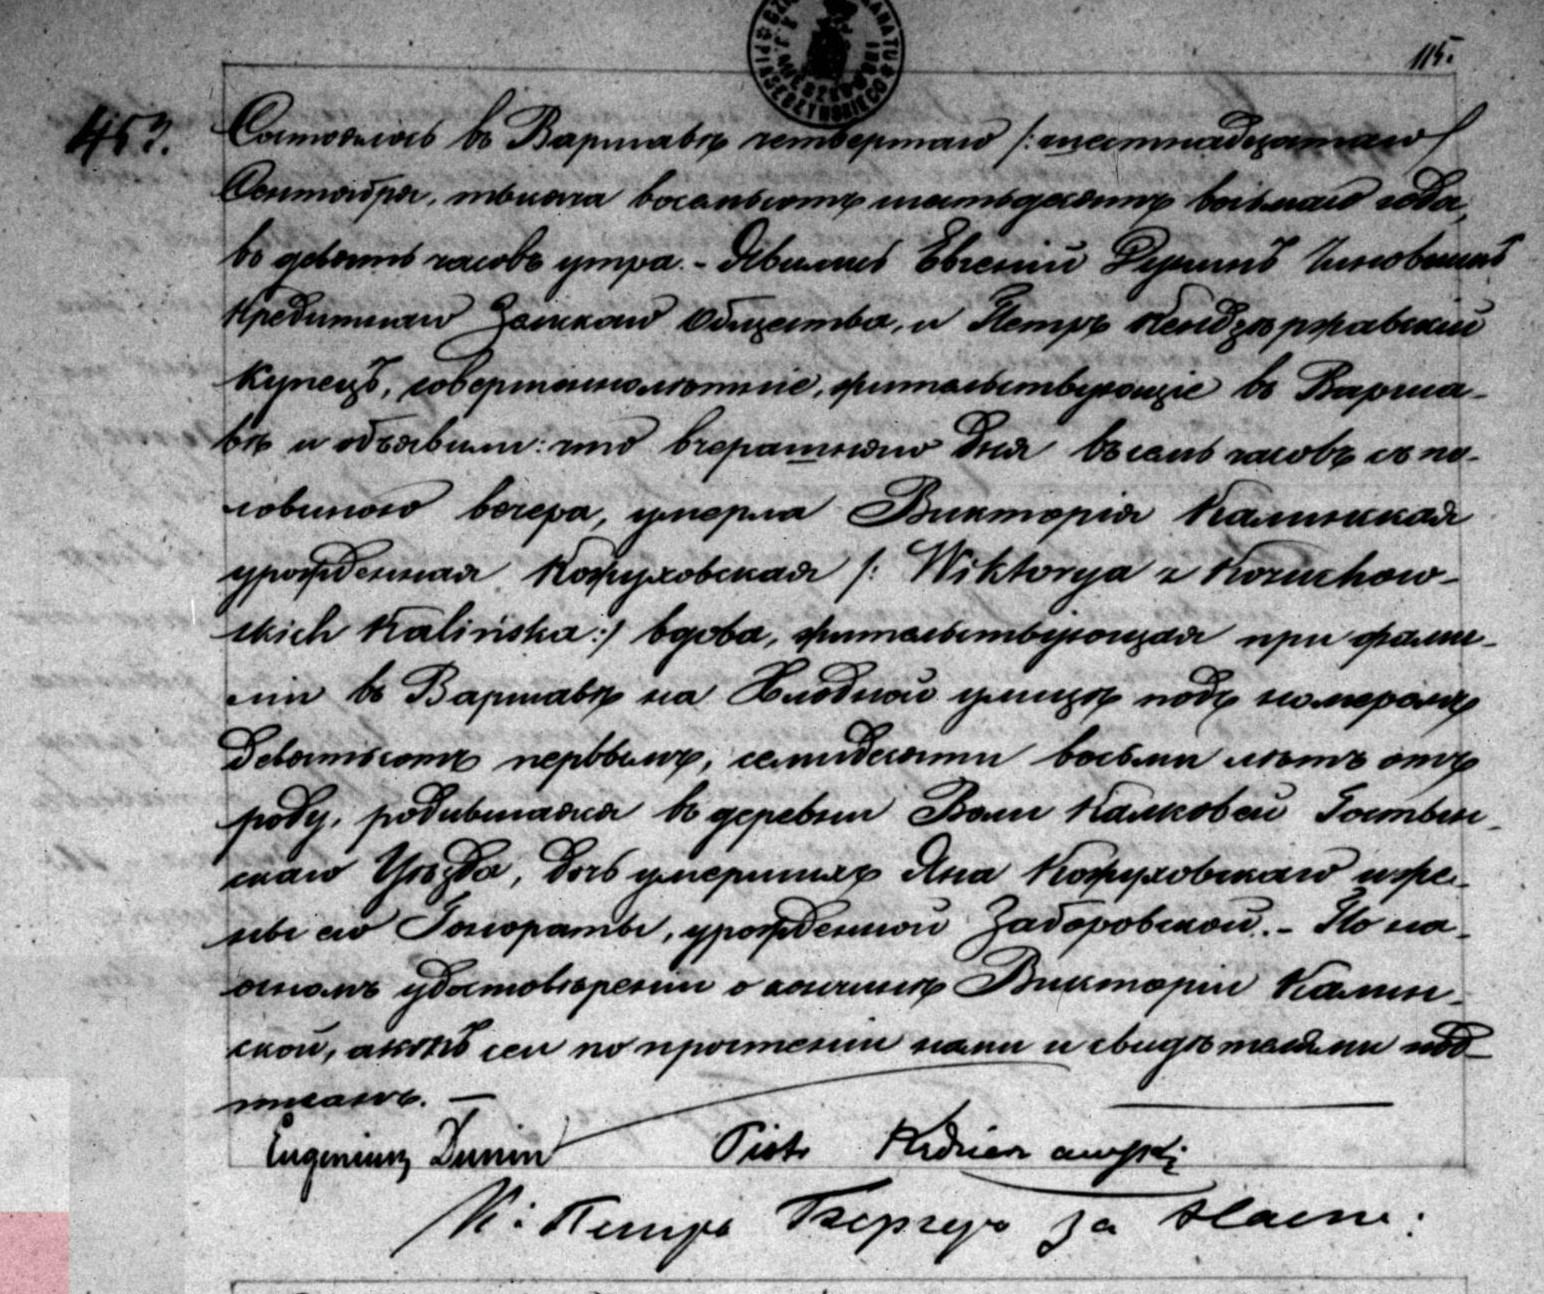 115.
453.
Состоялось въ Варшавѣ четвертаго /: шестнадцатаго /
Сентября, тысяча восемьсотъ шестьдесятъ восьмаго года,
въ девять часовъ утра. - Явились Евгеній Дунинъ Чиновникъ
Кредитнаго Земскаго Общества, и Петръ Кендзержавскій
Купецъ, совершеннолѣтніе, жительствующіе въ Варша-
вѣ и объявили: что вчерашняго дня въ семь часовъ съ по-
ловиною вечера, умерла Викторія Калинская
урожденная Кожуховская /: Wiktorya z Kozuchow-
skich Kalińska :/ вдова, жительствующая при фами-
ліи въ Варшавѣ на Хлодной улицѣ подъ номеромъ
девятьсотъ первымъ, семидесяти восьми лѣтъ отъ
роду, родившаяся въ деревни Воли Калковей Гостын-
скаго Уѣзда, дочь умершихъ Яна Кожуховскаго и же-
ны его Гонораты, урожденной Заборовской. - По на-
очномъ удостовѣреніи о кончинѣ Викторіи Калин-
ской, актъ сей по прочтеніи нами и свидѣтелями под-
писанъ. —
Eugeniusz Dunin Piotr
К: Петръ за